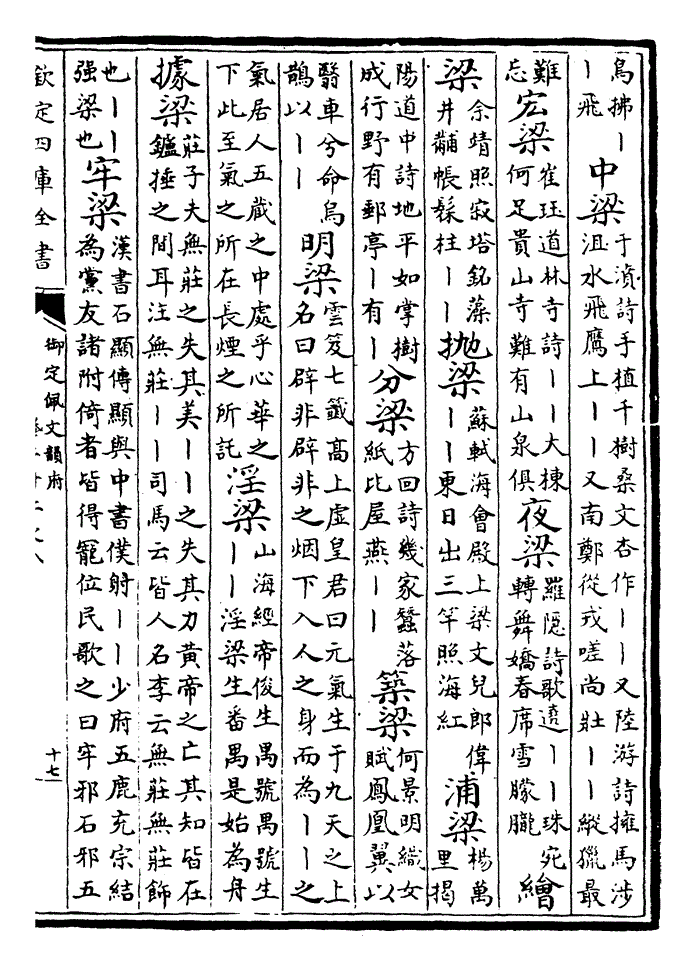 鳥拂｜｜飛中梁于濆詩手植千樹桑文杏作｜｜又陸游詩擁馬涉沮水飛鷹上｜｜又南鄭從戎嗟尚壯｜｜縱獵最
難忘宏梁崔珏道林寺詩｜｜大棟何足貴山寺難有山泉俱夜梁羅隱詩歌遶｜｜珠宛轉舞嬌春席雪朦朧繪
梁余靖照寂塔銘藻井黼帳髹柱｜｜拋梁蘇軾海會殿上梁文兒郎偉｜｜東日出三竿照海紅浦梁楊萬里揭
陽道中詩地平如掌樹成行野有郵亭｜有｜分梁方回詩幾家蠶落紙比屋燕｜｜築梁何景明織女賦鳳凰翼以
翳車兮命烏鵲以｜｜明梁雲笈七籤高上虛皇君曰元氣生于九天之上名曰辟非辟非之烟下入人之身而為｜｜之
氣居人五藏之中處乎心華之下此至氣之所在長煙之所託淫梁山海經帝俊生禺號禺號生｜｜淫梁生番禺是始為舟
據梁莊子夫無莊之失其美｜｜之失其力黃帝之亡其知皆在鑪捶之間耳注無莊｜｜司馬云皆人名李云無莊無莊飾
也｜｜强梁也牢梁漢書石顯傳顯與中書僕射｜｜少府五鹿充宗結為黨友諸附倚者皆得寵位民歌之曰牢邪石邪五
欽定四庫全書
御定佩文韻府
十七